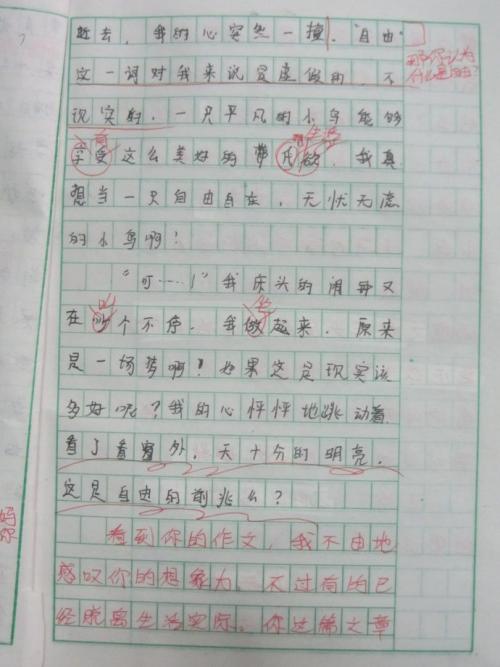 逝去，我的心突然一撞，"自由"
这一词对我来说是虚做的，不
现实的，一只平凡的小鸟能够
享受这么美好的
我真
想当一只自由自在，无忧无虑
的小鸟啊！
"叮……！"我床头的闹钟又
在叫个不停，我做起来，原来
是一场梦啊！如果这是现实该
多好呢？我的心怦怦地跳动着
看了看窗外，天十分的明亮，
这是自由的前兆么？
那你认为
什么是自由？
看到你的作文，我不由地
感叹你的想象力，不过有的已
经脱离生活实际，你这篇文章